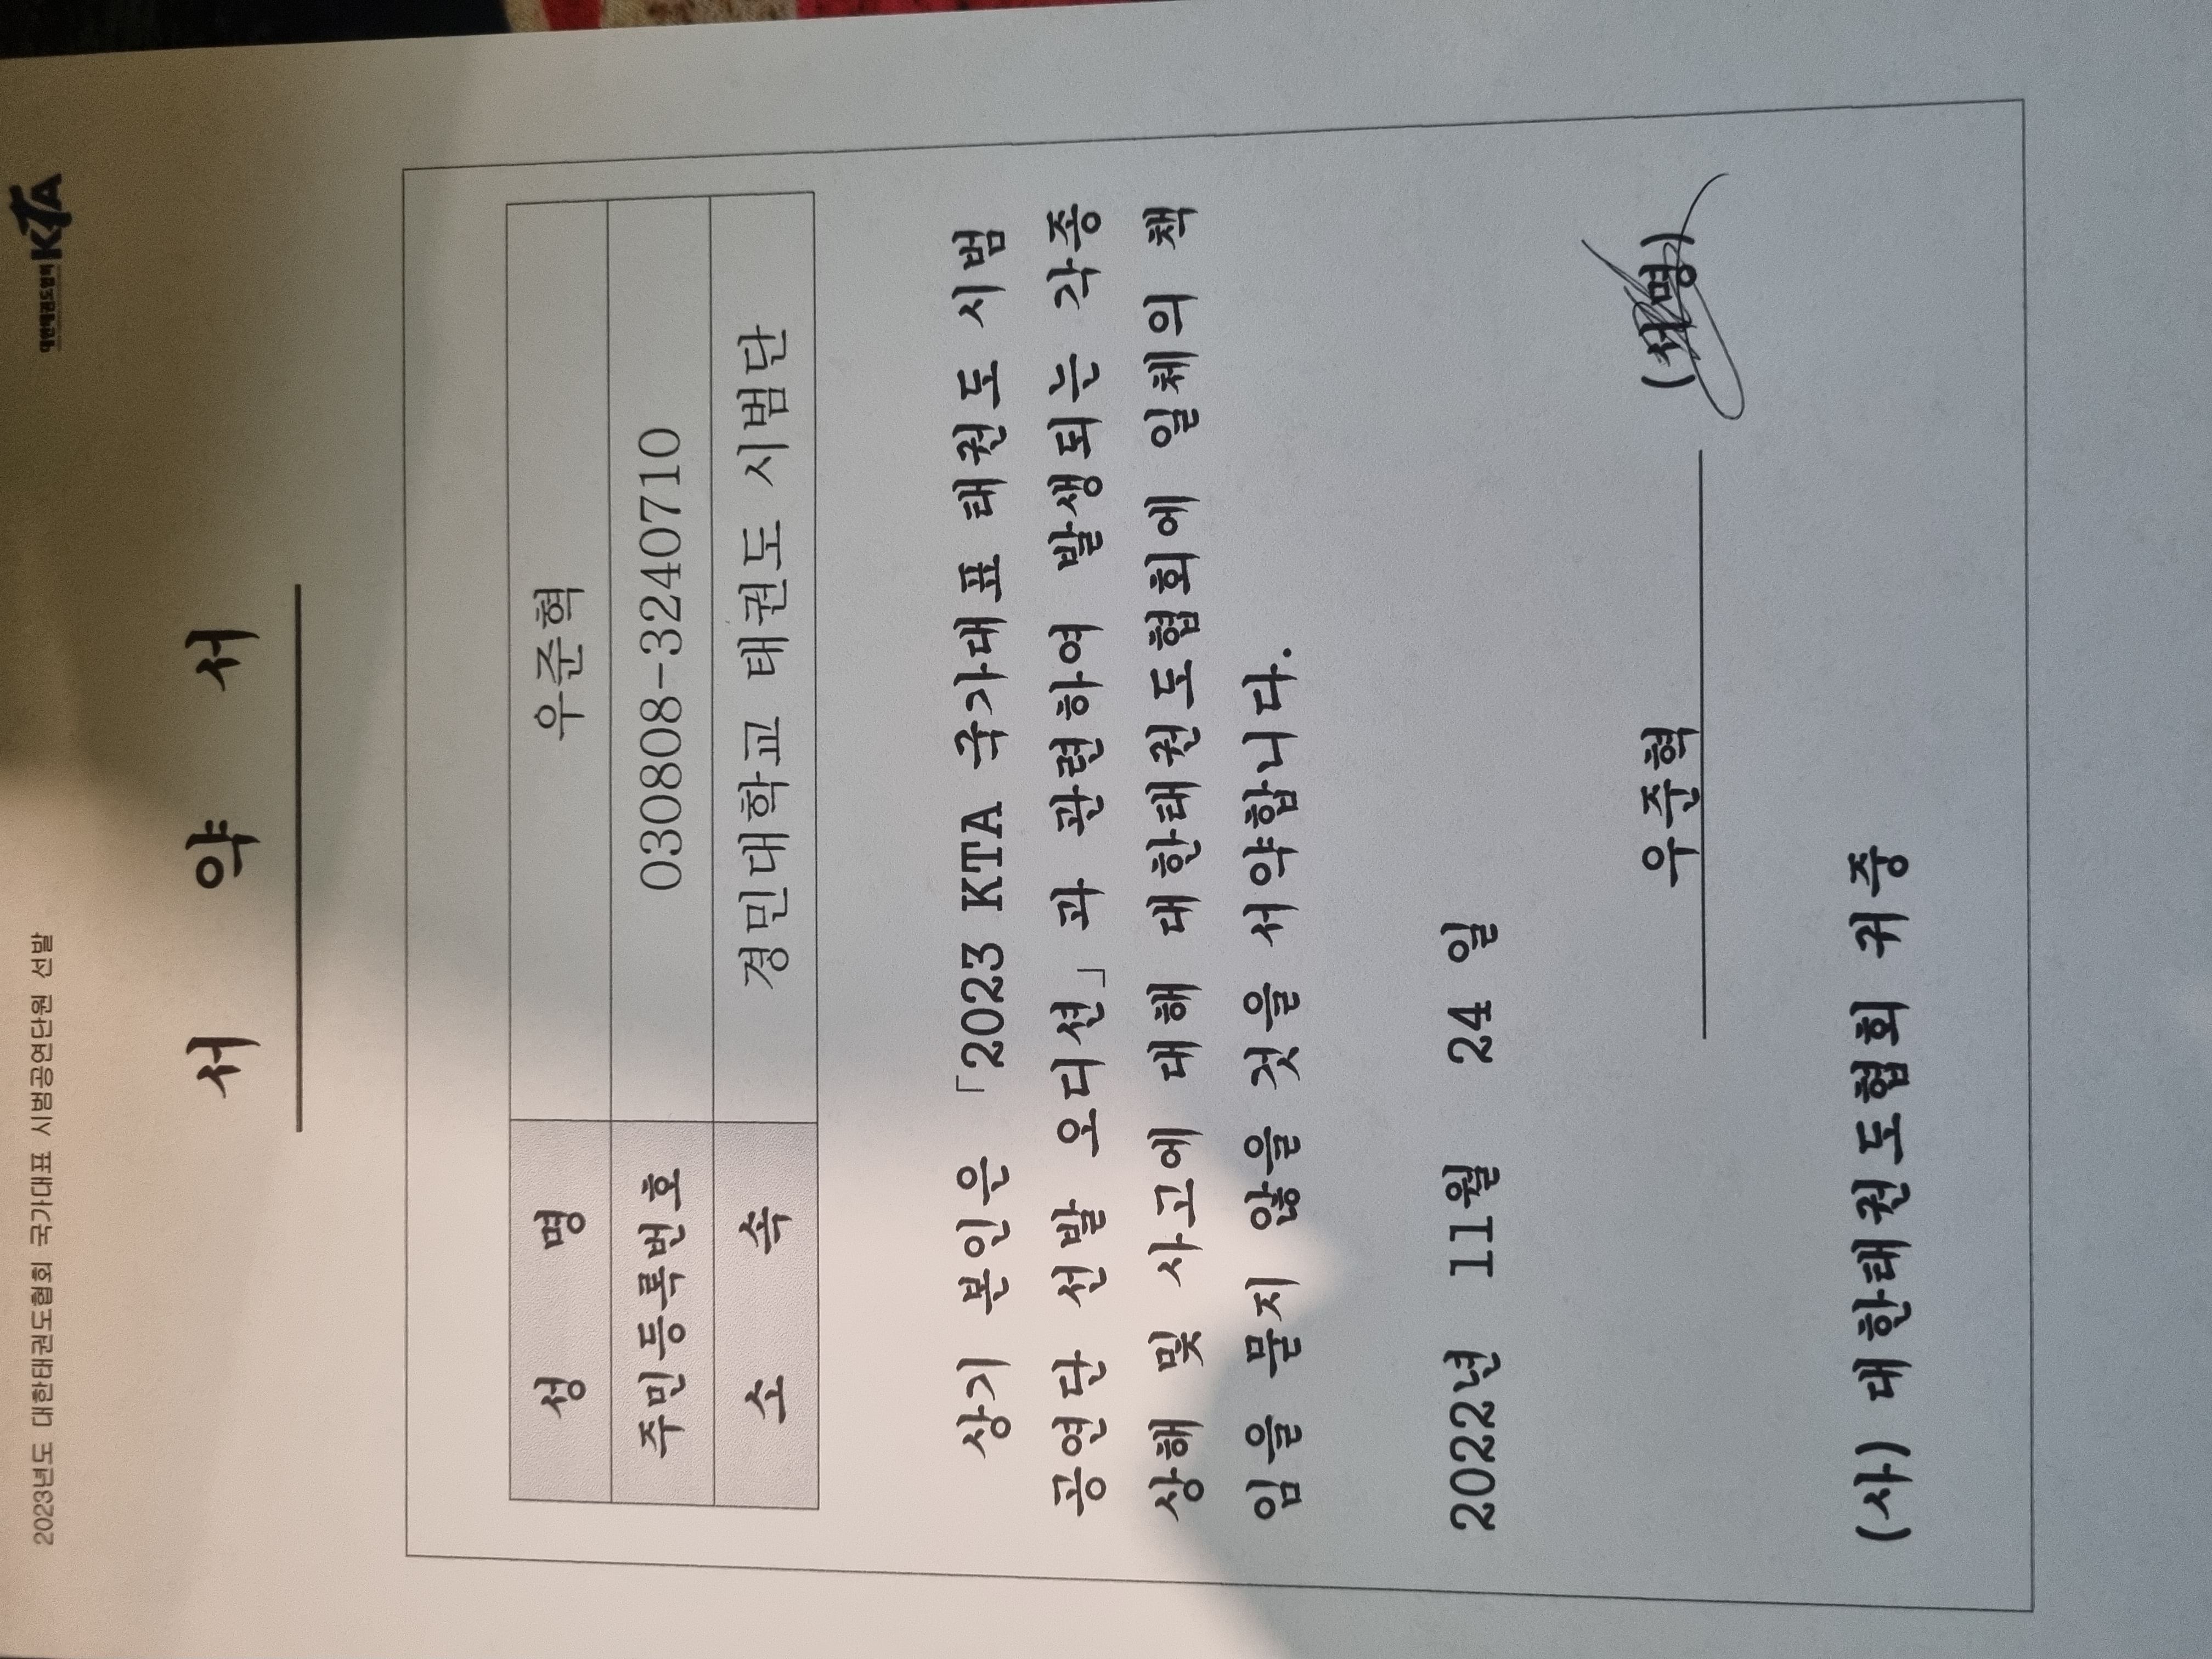 2023년도 대한태권도협회 국가대표 시범공연단원 선발
대한태권도협회 KTA
서 약 서
성 명 우준혁
주민등록번호 030808-3240710
소 속 경민대학교 태권도 시범단
상기 본인은 「2023 KTA 국가대표 태권도 시범
공연단 선발 오디션」과 관련하여 발생되는 각종
상해 및 사고에 대해 대한태권도협회에 일체의 책
임을 묻지 않을 것을 서약합니다.
2022년 11월 24 일
우준혁 (서명)
(사) 대한태권도협회 귀중